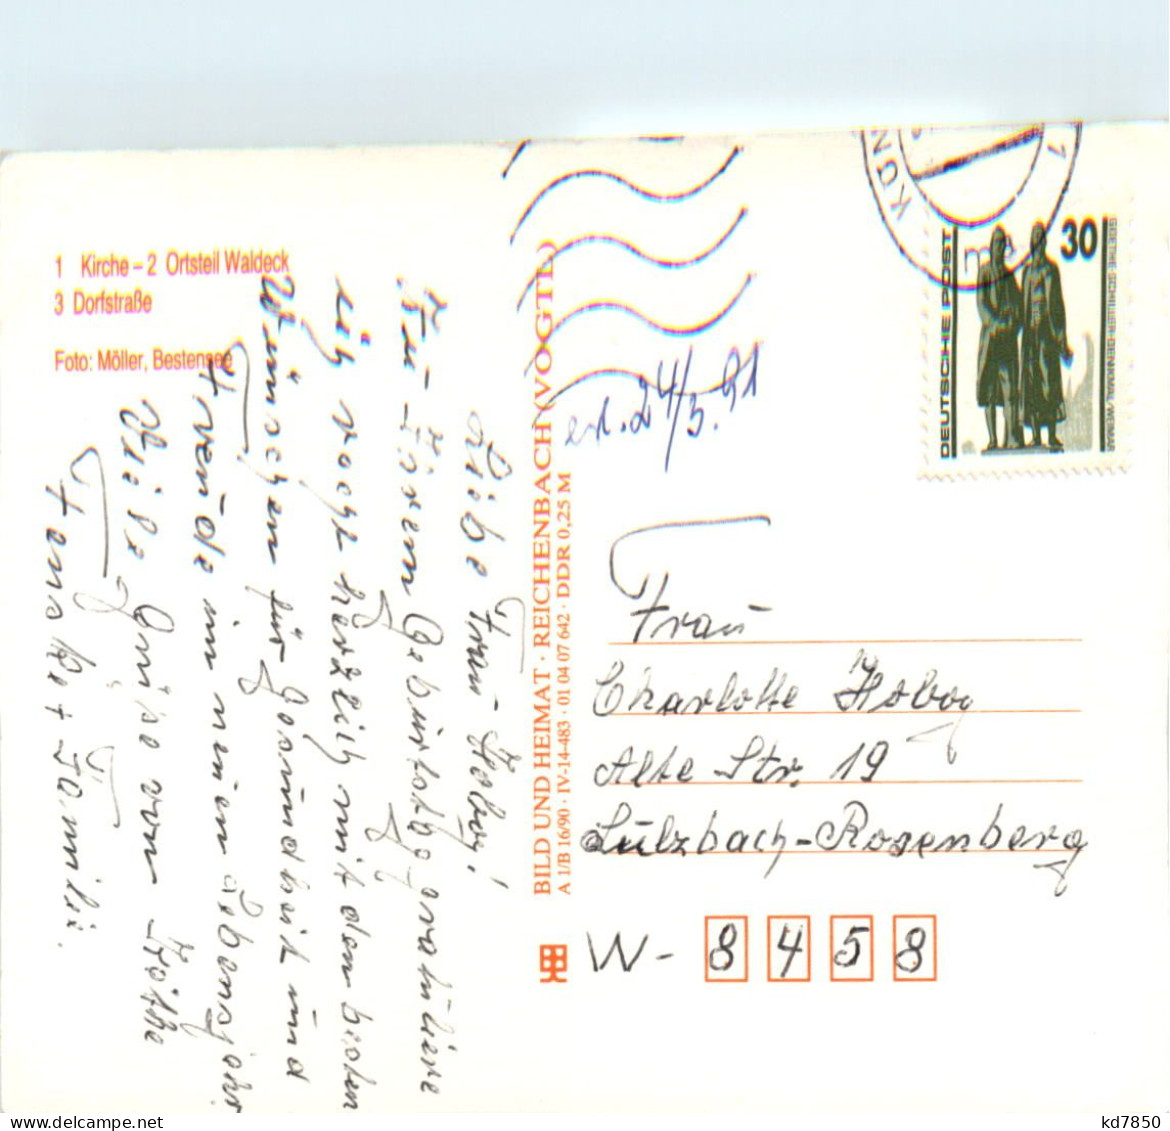 1 Kirche – 2 Ortsteil Waldeck
3 Dorfstraße
Foto: Möller, Bestensee
Liebe Frau Hoboy!
Zu Ihrem Geburtstag gratuliere
ich recht herzlich mit den besten
Wünschen für Gesundheit und
Freude im neuen Lebensjahr
Viele Grüße von
Familie.
BILD UND HEIMAT · REICHENBACH (VOGTL)
A 1/B 16/90 · IV-14-483 · 01 04 07 642 · DDR 0,25 M
24/3.91
DEUTSCHE POST
30
GOETHE-SCHILLER-DENKMAL, WEIMAR
Frau
Charlotte Hoboy
Alte Str. 19
Sulzbach-Rosenberg
W- 8458
kd7850